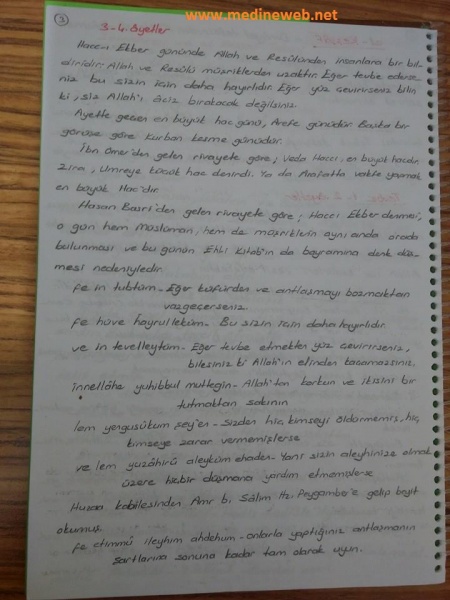 www.medineweb.net
3
3-4. Ayetler
Hacc-ı Ekber gününde Allah ve Resûlünden insanlara bir bil-
diridir: Allah ve Resûlü müşriklerden uzaktır. Eğer tevbe ederse-
niz bu sizin için daha hayırlıdır. Eğer yüz çevirirseniz bilin
ki, siz Allah'ı âciz bırakacak değilsiniz.
Ayette geçen en büyük hac günü, Arefe günüdür. Başka bir
görüşe göre kurban kesme günüdür.
İbn Ömer'den gelen rivayete göre; Veda Haccı, en büyük hacdır.
Zira, Umreye küçük hac denirdi. Ya da Arafatta vakfe yapmak
en büyük Hac'dır.
Hasan Basri'den gelen rivayete göre; Haccı Ekber denmesi,
o gün hem Müslüman, hem de müşriklerin aynı anda orada
bulunması ve bu günün Ehli Kitab'ın da bayramına denk düş-
mesi nedeniyledir.
fe in tubtüm - Eğer küfürden ve antlaşmayı bozmaktan
vazgeçerseniz.
fe hüve hayrul leküm - Bu sizin için daha hayırlıdır.
ve in tevelleytüm - Eğer tevbe etmekten yüz çevirirseniz,
bilesiniz ki Allah'ın elinden kaçamazsınız.
innellâhe yuhibbul mutteqin - Allah'tan korkun ve ikisini bir
tutmaktan sakının
lem yenqusûkum şey'en - sizden hiç kimseyi öldürmemiş, hiç
kimseye zarar vermemişlerse
ve lem yuzâhirû aleyküm ehaden - Yani sizin aleyhinize olmak
üzere hiçbir düşmana yardım etmemişlerse
Huzaa kabilesinden Amr b. Sâlim Hz. Peygamber'e gelip beyit
okumuş.
fe etimmû ileyhim ahdehum - onlarla yaptığınız antlaşmanın
şartlarına sonuna kadar tam olarak uyun.